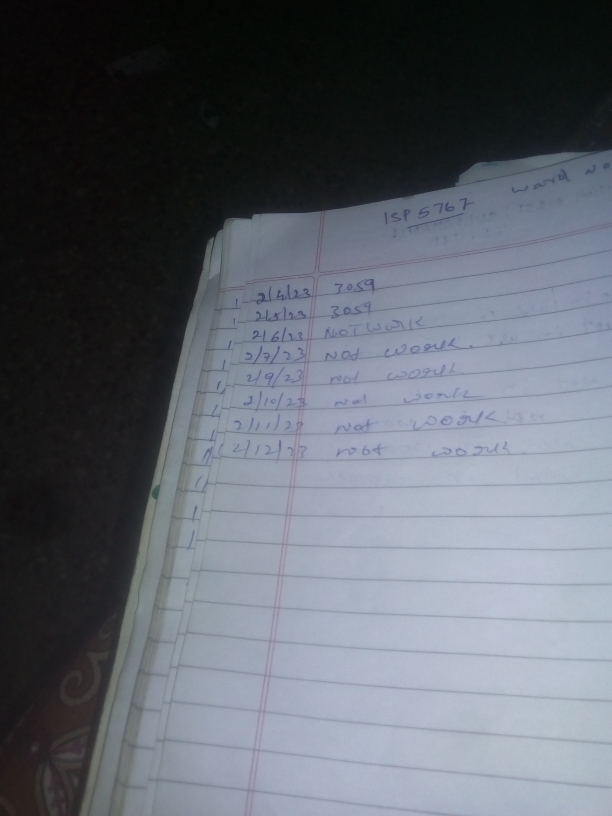 ISP 5767 ward no
2/4/23 3059
2/5/23 3059
2/6/23 NOT WORK
2/7/23 Not work.
2/9/23 not work
2/10/23 not work
2/11/23 Not work
2/12/23 not work.